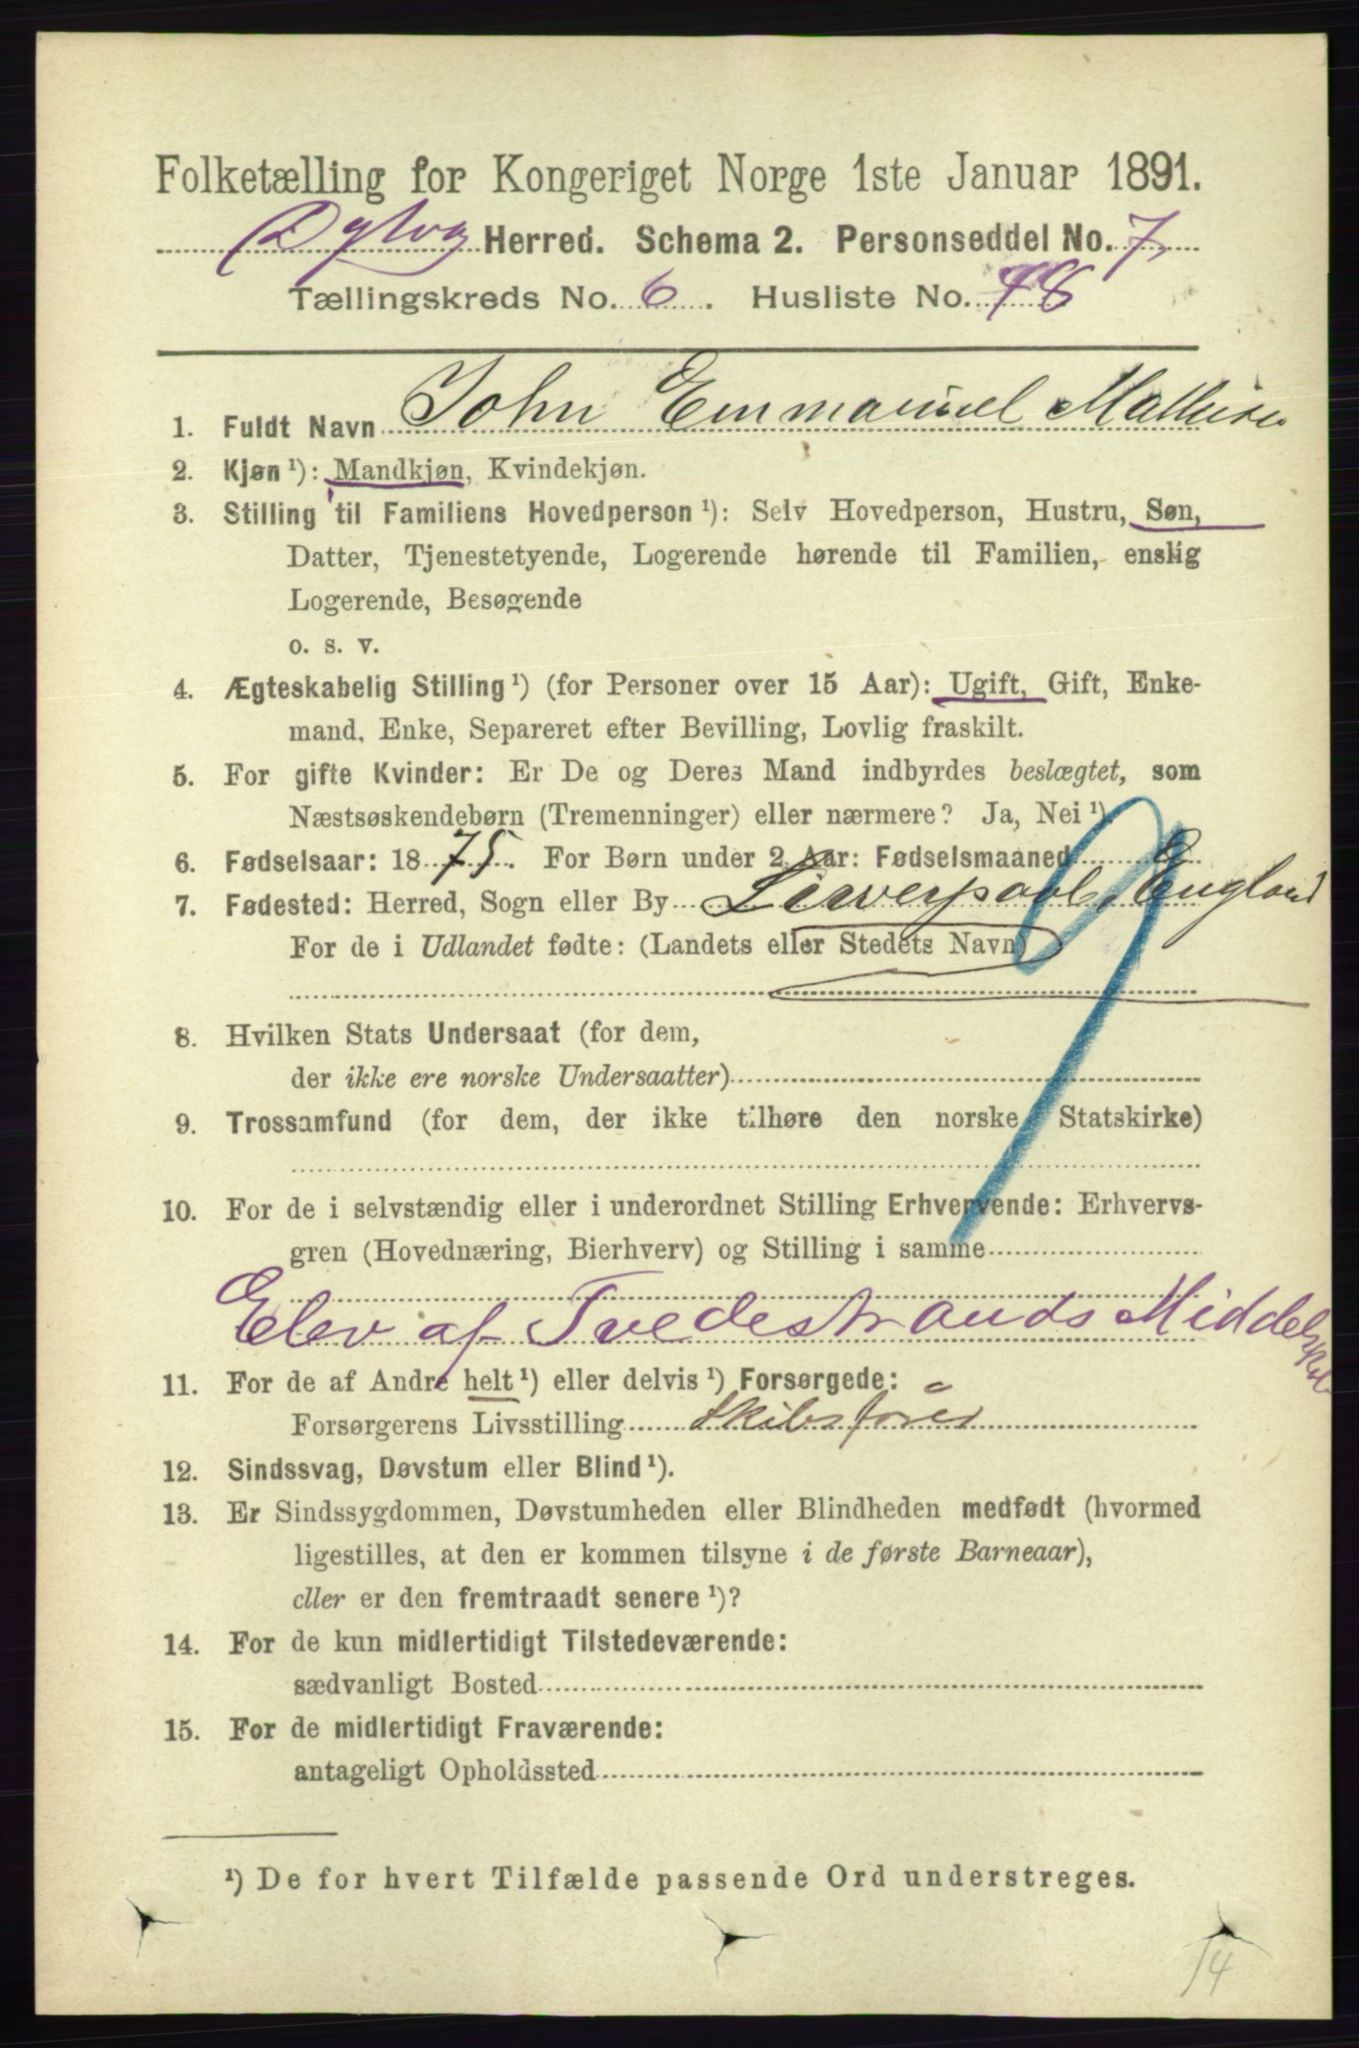 Folketælling for Kongeriget Norge 1ste Januar 1891.
Dybvog Herred. Schema 2. Personseddel No. 7
Tællingskreds No. 6. Husliste No. 48
1. Fuldt Navn John Emmanuel Mathisen
2. Kjøn ¹): Mandkjøn, Kvindekjøn.
3. Stilling til Familiens Hovedperson ¹): Selv Hovedperson, Hustru, Søn,
Datter, Tjenestetyende, Logerende hørende til Familien, enslig
Logerende, Besøgende
o. s. v.
4. Ægteskabelig Stilling ¹) (for Personer over 15 Aar): Ugift, Gift, Enke-
mand, Enke, Separeret efter Bevilling, Lovlig fraskilt.
5. For gifte Kvinder: Er De og Deres Mand indbyrdes beslægtet, som
Næstsøskendebørn (Tremenninger) eller nærmere? Ja, Nei ¹)
6. Fødselsaar: 1875. For Børn under 2 Aar: Fødselsmaaned
7. Fødested: Herred, Sogn eller By Liverpool, England
For de i Udlandet fødte: (Landets eller Stedets Navn)
8. Hvilken Stats Undersaat (for dem,
der ikke ere norske Undersaatter)
9. Trossamfund (for dem, der ikke tilhøre den norske Statskirke)
10. For de i selvstændig eller i underordnet Stilling Erhvervende: Erhvervs-
gren (Hovednæring, Bierhverv) og Stilling i samme
Elev af Tvedestrands Middelskol
11. For de af Andre helt ¹) eller delvis ¹) Forsørgede:
Forsørgerens Livsstilling Skibsfører
12. Sindssvag, Døvstum eller Blind ¹).
13. Er Sindssygdommen, Døvstumheden eller Blindheden medfødt (hvormed
ligestilles, at den er kommen tilsyne i de første Barneaar),
eller er den fremtraadt senere ¹)?
14. For de kun midlertidigt Tilstedeværende:
sædvanligt Bosted
15. For de midlertidigt Fraværende:
antageligt Opholdssted
¹) De for hvert Tilfælde passende Ord understreges.
14